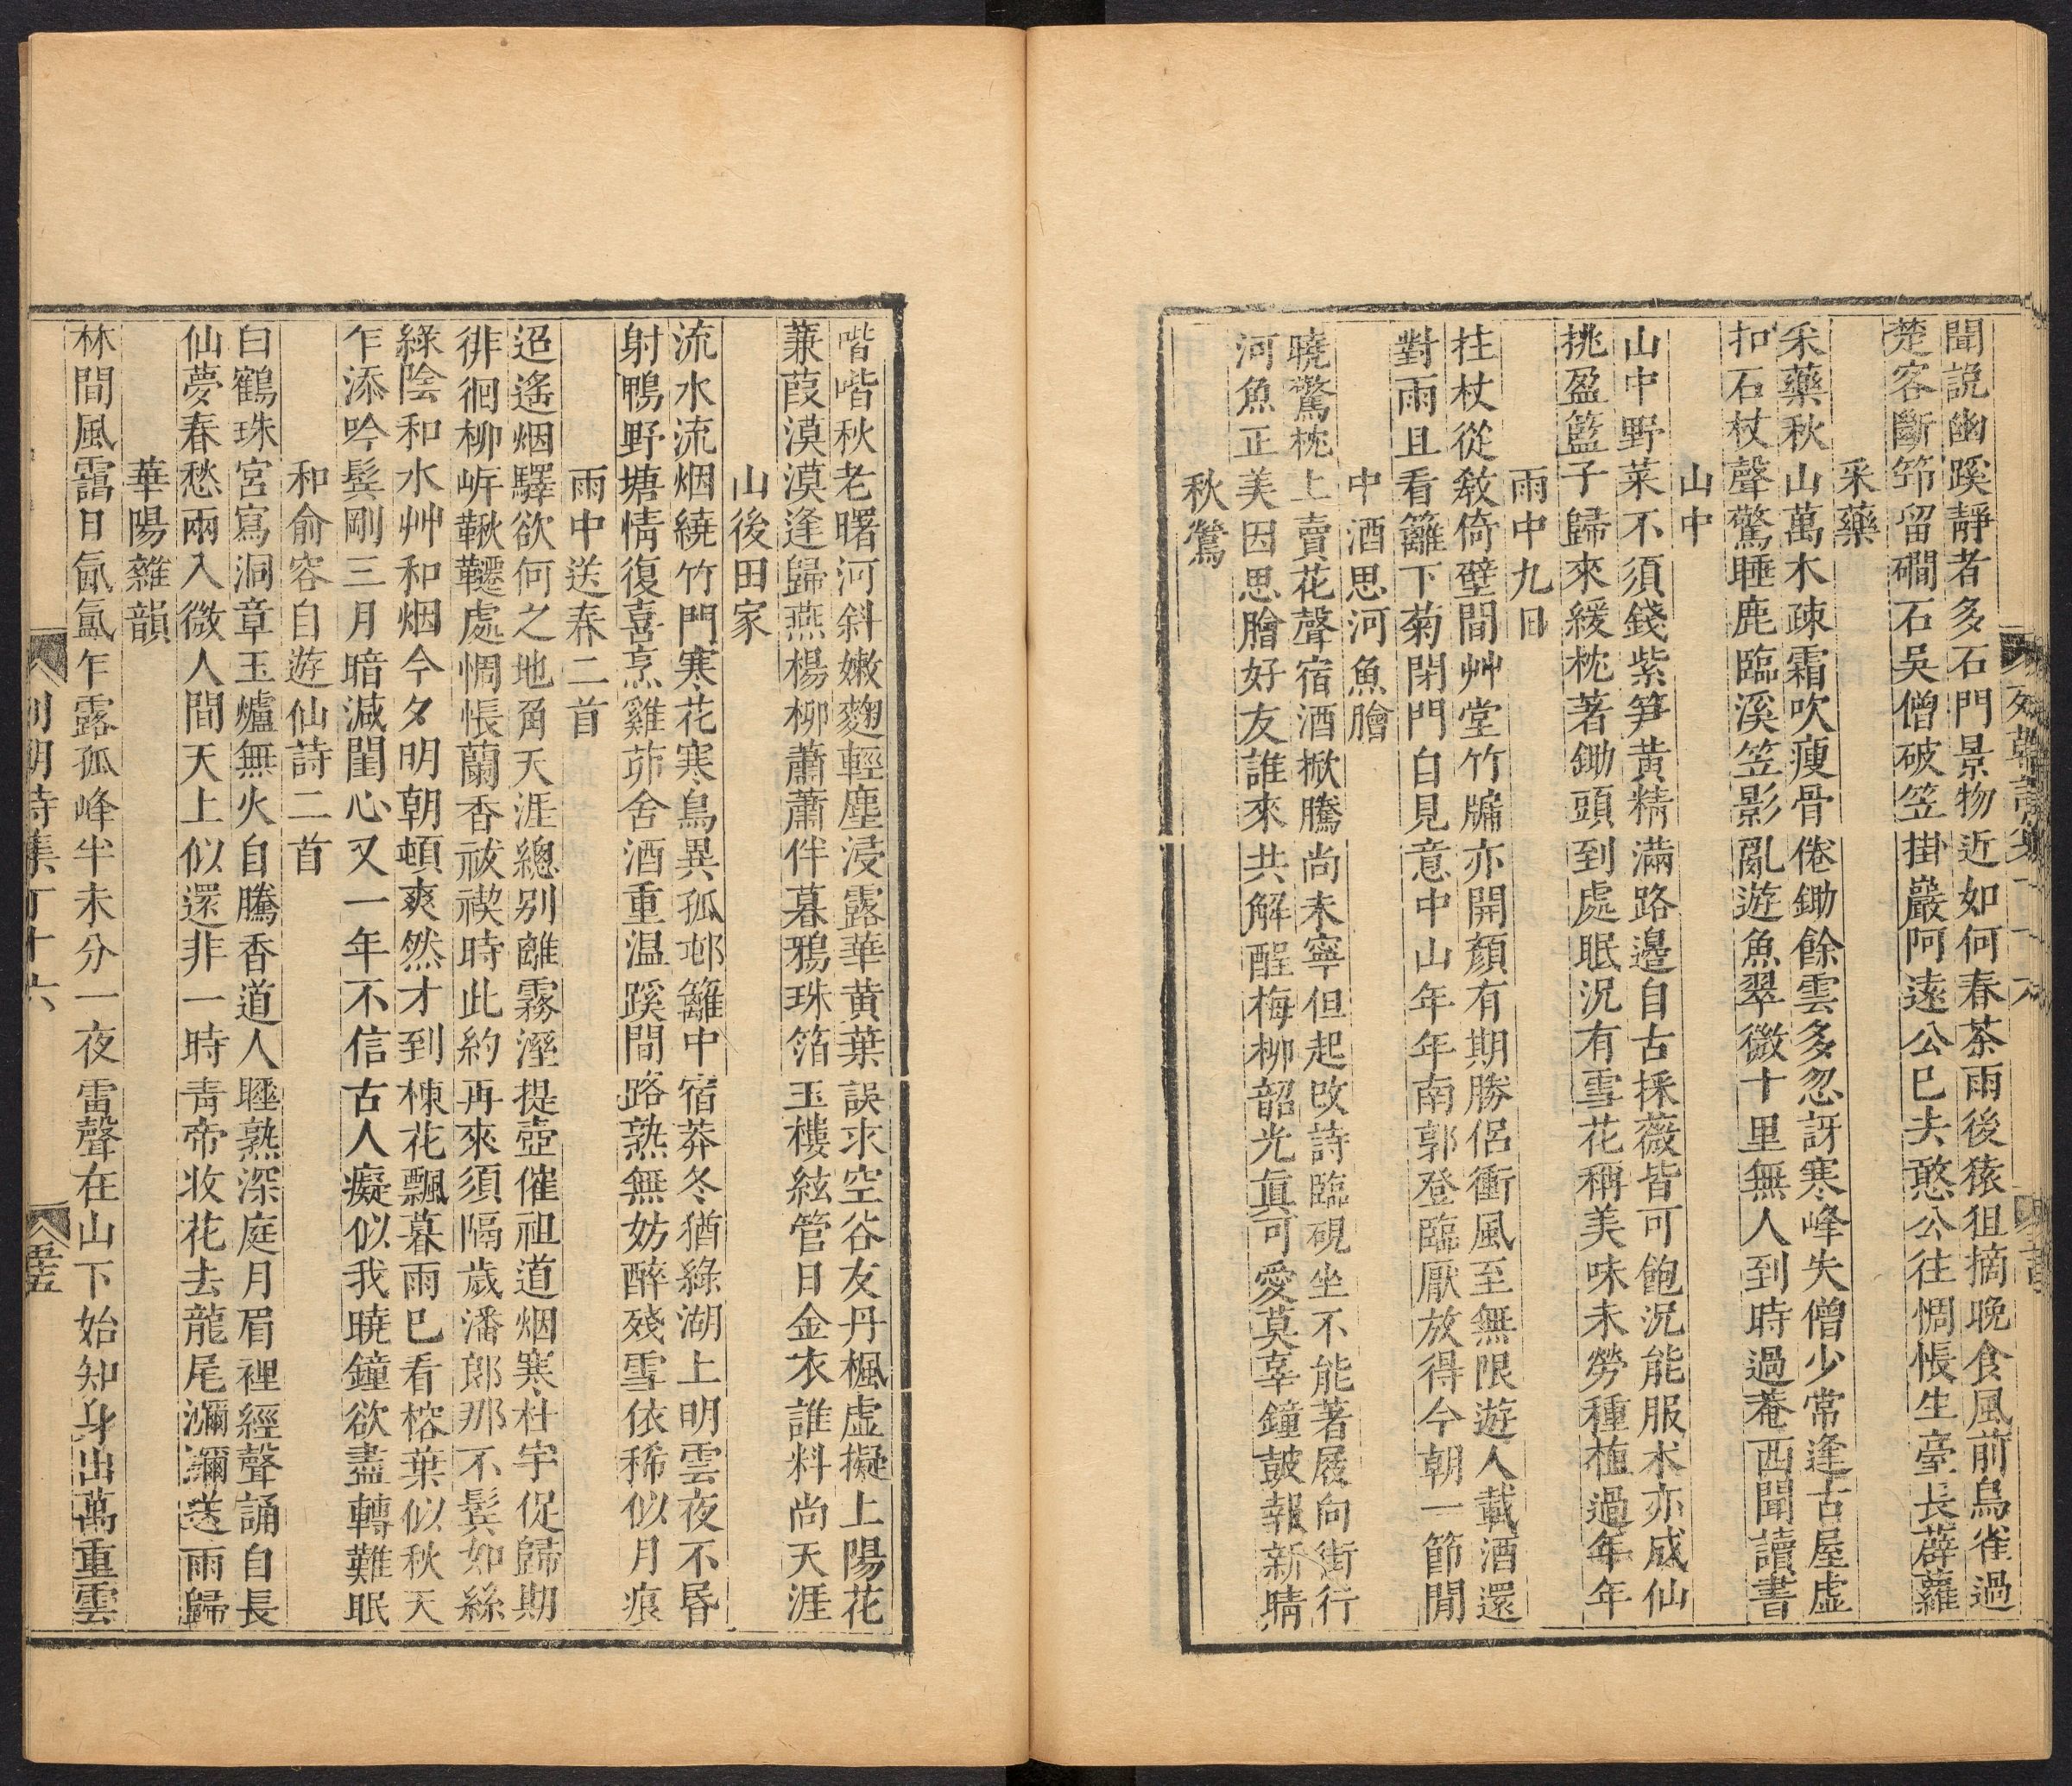 聞說幽蹊靜者多石門景物近如何春茶雨後猿狙摘晚食風前鳥雀過
楚客斷笻留磵石吳僧破笠掛巖阿遠公已去憨公往惆悵生臺長薜蘿
采藥
采藥秋山萬木疎霜吹瘦骨倦鋤餘雲多忽訝寒峰失僧少常逢古屋虛
扣石杖聲驚睡鹿臨溪笠影亂遊魚翠微十里無人到時過菴西聞讀書
山中
山中野菜不須錢紫笋黃精滿路邊自古採薇皆可飽況能服朮亦成仙
挑盈籃子歸來緩枕著鋤頭到處眠況有雪花稱美味未勞種植過年年
雨中九日
拄杖從敎倚壁間艸堂竹牖亦開顏有期勝侶衝風至無限遊人載酒還
對雨且看籬下菊閉門自見意中山年年南郭登臨厭放得今朝一節閒
中酒思河魚膾
曉驚枕上賣花聲宿酒掀騰尚未寧但起改詩臨硯坐不能著屐向街行
河魚正美因思膾好友誰來共解酲梅柳韶光眞可愛莫辜鐘皷報新晴
秋鶯
喈喈秋老曙河斜嫩麴輕塵浸露華黃葉誤求空谷友丹楓虛擬上陽花
蒹葭漠漠逢歸燕楊柳蕭蕭伴暮鴉珠箔玉樓絃管日金衣誰料尚天涯
山後田家
流水流烟繞竹門寒花寒鳥異孤邨籬中宿莽冬猶綠湖上明雲夜不昏
射鴨野塘情復喜烹雞茆舍酒重温蹊間路熟無妨醉殘雪依稀似月痕
雨中送春二首
迢遙烟驛欲何之地角天涯總别離霧溼提壺催祖道烟寒杜宇促歸期
徘徊柳岍鞦韆處惆悵蘭香祓禊時此約再來須隔歲潘郎那不鬂如絲
綠陰和水艸和烟今夕明朝頓爽然才到楝花飄暮雨巳看榕葉似秋天
乍添吟鬂剛三月暗減閨心又一年不信古人癡似我曉鐘欲盡轉難眠
和俞容自遊仙詩二首
白鶴珠宮寫洞章玉爐無火自騰香道人睡熟深庭月眉裡經聲誦自長
仙夢春愁兩入微人間天上似還非一時靑帝收花去龍尾瀰瀰送雨歸
華陽雜韻
林間風靄日氤氳乍露孤峰半未分一夜雷聲在山下始知身出萬重雲
列朝詩集丁十六